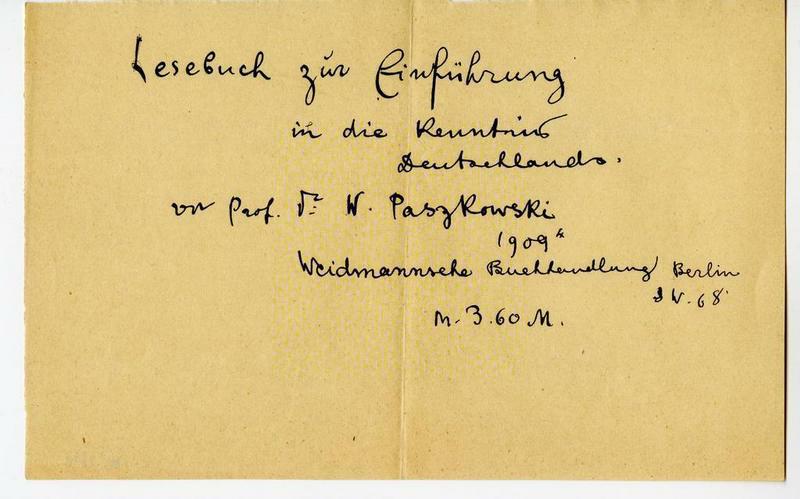 Lesebuch zur Einführung
in die Kenntnis
Deutschlands.
von Prof. Dr. W. Paszkowski
1909
Weidmannsche Buchhandlung Berlin
SW. 68
M. 3.60 M.